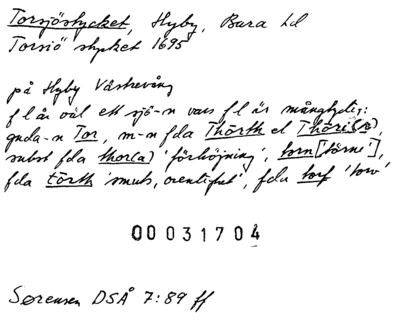 Torsjöstycket, Hyby, Bara hd
Torsiö stycket 1695
på Hyby Västervång
f l är väl ett sjö-n vars f l är mångtydig:
guda-n Tor, m-n fda Thorth el Thöri(r),
subst fda thor(a) 'förhöjning', torn ['törne'],
fda törth 'smuts, orenlighet', fda torf 'torv'
00031704
Sørensen DSÅ 7:89 ff